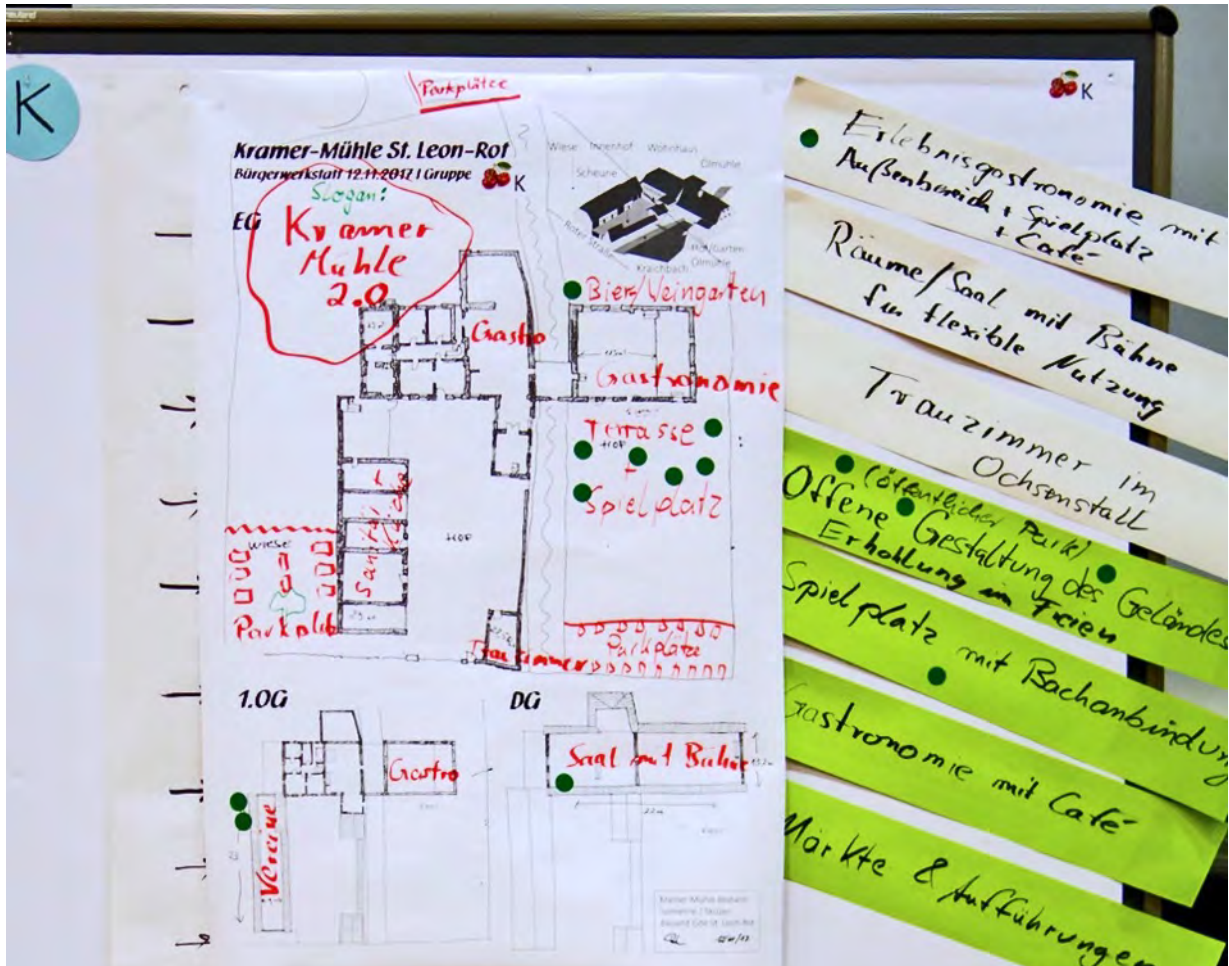 K
Parkplätze
K
Kramer-Mühle St. Leon-Rot
Bürgerwerkstatt 12.11.2017 | Gruppe K
Slogan:
EG
Kramer
Mühle
2.0
Wiese Innenhof Wohnhaus
Ölmühle
Scheune
Roter Straße
Hof/Garten
Ölmühle
Kraichbach
Bier/Weingarten
Gastro
Gastronomie
Terrasse
HOF
+
Spielplatz
HOF
Sanitär
WIESE
Parkplätze
Trauzimmer
1.OG
Gastro
Vereine
DG
Saal mit Bühne
22m
Erlebnisgastronomie mit
Außenbereich + Spielplatz
+ Café
Räume/Saal mit Bühne
für flexible Nutzung
Trauzimmer im
Ochsenstall
(öffentlicher Park)
Offene Gestaltung des Geländes
Erhohlung im Freien
Spielplatz mit Bachanbindung
Gastronomie mit Café
Märkte & Aufführungen